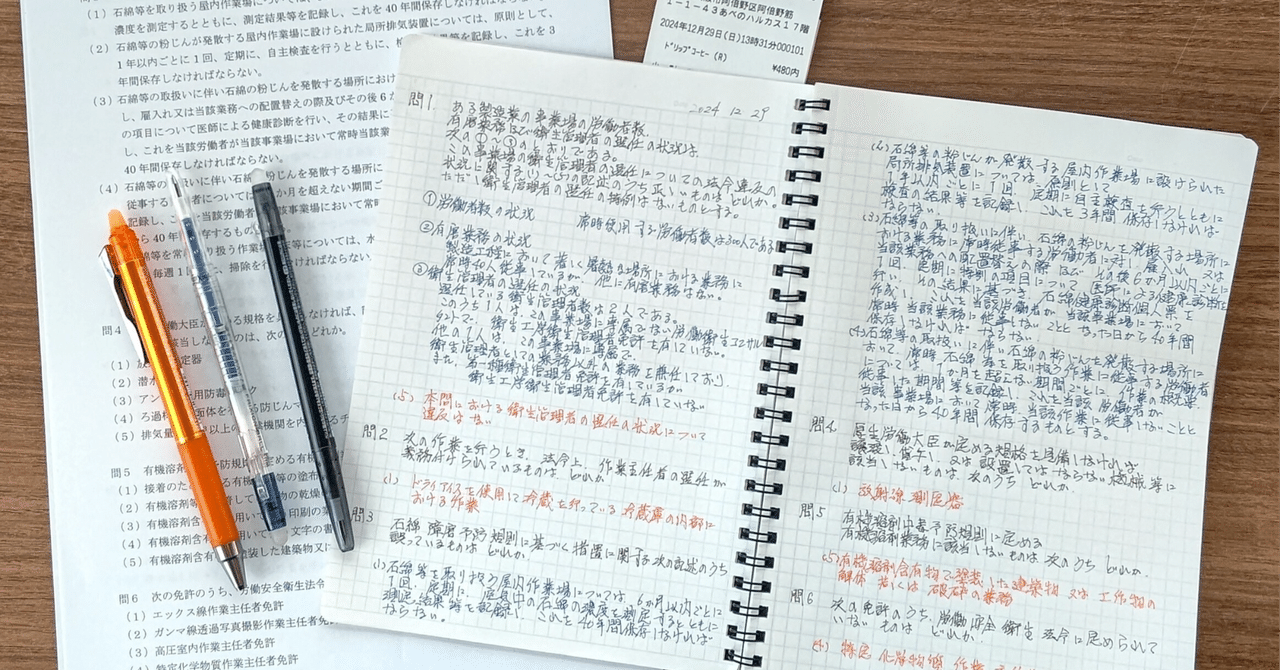 (1) 石綿等を取り扱う屋内作業場については、
濃度を測定するとともに、測定結果等を記録し、これを40年間保存しなければならない。
(2) 石綿等の粉じんが発散する屋内作業場に設けられた局所排気装置については、原則として、
1年以内ごとに1回、定期に、自主検査を行うとともに、検 記録し、これを3
年間保存しなければならない。
(3) 石綿等の取扱いに伴い石綿の粉じんを発散する場所におけ
し、雇入れ又は当該業務への配置替えの際及びその後6か
の項目について医師による健康診断を行い、その結果に
し、これを当該労働者が当該事業場において常時当該業
40年間保存しなければならない。
(4) 石綿等の 扱いに伴い石綿の粉じんを発散する場所に
従事する 者については か月を超えない期間ご
記録し、 当該労働者が当該事業場において
ら40年 存するものとする。
石綿等を常 り扱う作業場 等については、水
毎週1 掃除を行わなければならない
問4 働大臣が る規格を しなければ、
該当しな のは、次の どれか。
(1) 放 定器
(2) 潜水
(3) アン 用防毒 ク
(4) ろ過 面体を 防じんマ
(5) 排気量 以上の 機関を内 するチ
問5 有機溶剤 予防規則に める有機
(1) 接着のた 等の塗布
(2) 有機溶剤等 着して 物の乾燥
(3) 有機溶剤含 用いて 印刷の業
(4) 有機溶剤含有 用いて 文字の書
(5) 有機溶剤含有 塗装した建築物又
問6 次の免許のうち、 働安全衛生法令
(1) エックス線作業主任者免許
(2) ガンマ線透過写真撮影作業主任者免許
(3) 高圧室内作業主任者免許
(4) 特定化学物質作業主任者免許
阿倍野区阿倍野筋
1-1-43あべのハルカス17階
2024年12月29日(日)13時31分000101
ドリップコーヒー (R)
¥480円
2024 12 29
問1. ある製造業の事業場の労働者数、
有害業務及び衛生管理者の選任の状況は、
次の①~③のとおりである。
この事業場の衛生管理者の選任についての法令違反の
状況に関する(1)~(5)の記述のうち正しいものはどれか。
ただし衛生管理者の選任の特例はないものとする。
①労働者数の状況
常時使用する労働者数は300人である
②有害業務の状況
製造工程において著しく暑熱な場所における業務に
常時40人従事しているが、他に有害業務はない。
③衛生管理者の選任の状況
選任している衛生管理者数は2人である。
このうち1人は、この事業場に専属でない労働衛生コンサル
タントで、衛生工学衛生管理者免許を有していない。
他の1人は、この事業場に専属で
衛生管理者としての業務以外の業務を兼任しており、
また、第一種衛生管理者免許を有しているが、
衛生工学衛生管理者免許を有していない
(5) 本問における衛生管理者の選任の状況について
違反はない
問2 次の作業を行うとき、法令上、作業主任者の選任が
義務付けられているものはどれか。
(1) ドライアイスを使用して冷蔵を行っている冷蔵庫の内部に
おける作業
問3 石綿障害予防規則に基づく措置に関する次の記述のうち
誤っているものはどれか。
(1) 石綿等を取り扱う屋内作業場については、6か月以内ごとに
1回、定期に、空気中の石綿の濃度を測定するとともに
測定結果等を記録し、これを40年間保存しなければ
ならない。
(2) 石綿等の粉じんが発散する屋内作業場に設けられた
局所排気装置については、原則として
1年以内ごとに1回、定期に自主検査を行うとともに
検査の結果等を記録し、これを3年間保存しなければ
ならない。
(3) 石綿等の取り扱いに伴い、石綿の粉じんを発散する場所に
おける業務に常時従事する労働者に対し、雇入れ又は
当該業務への配置替えの際及びその後6か月以内ごとに
1回、定期に特別の項目について医師による健康診断を
行い、その結果に基づき、石綿健康診断個人票を
作成し、これを当該労働者が当該事業場において
常時当該業務に従事しないこととなった日から40年間
保存しなければならない。
(4) 石綿等の取扱いに伴い石綿の粉じんを発散する場所に
おいて、常時石綿等を取り扱う作業に従事する労働者
については、1か月を超えない期間ごとに、作業の概要、
従事した期間等を記録し、これを当該労働者が
当該事業場において常時当該作業に従事しないことと
なった日から40年間保存するものとする。
問4 厚生労働大臣が定める規格を具備しなければ、
譲渡し、貸与し、又は設置してはならない機械等に
該当しないものは、次のうちどれか。
(1) 放射線測定器
問5 有機溶剤中毒予防規則に定める
有機溶剤業務に該当しないものは次のうちどれか。
(5) 有機溶剤含有物で塗装した建築物又は工作物の
解体若しくは破砕の業務
問6 次の免許のうち、労働安全衛生法令に定められて
いないものはどれか。
(4) 特定化学物質作業主任